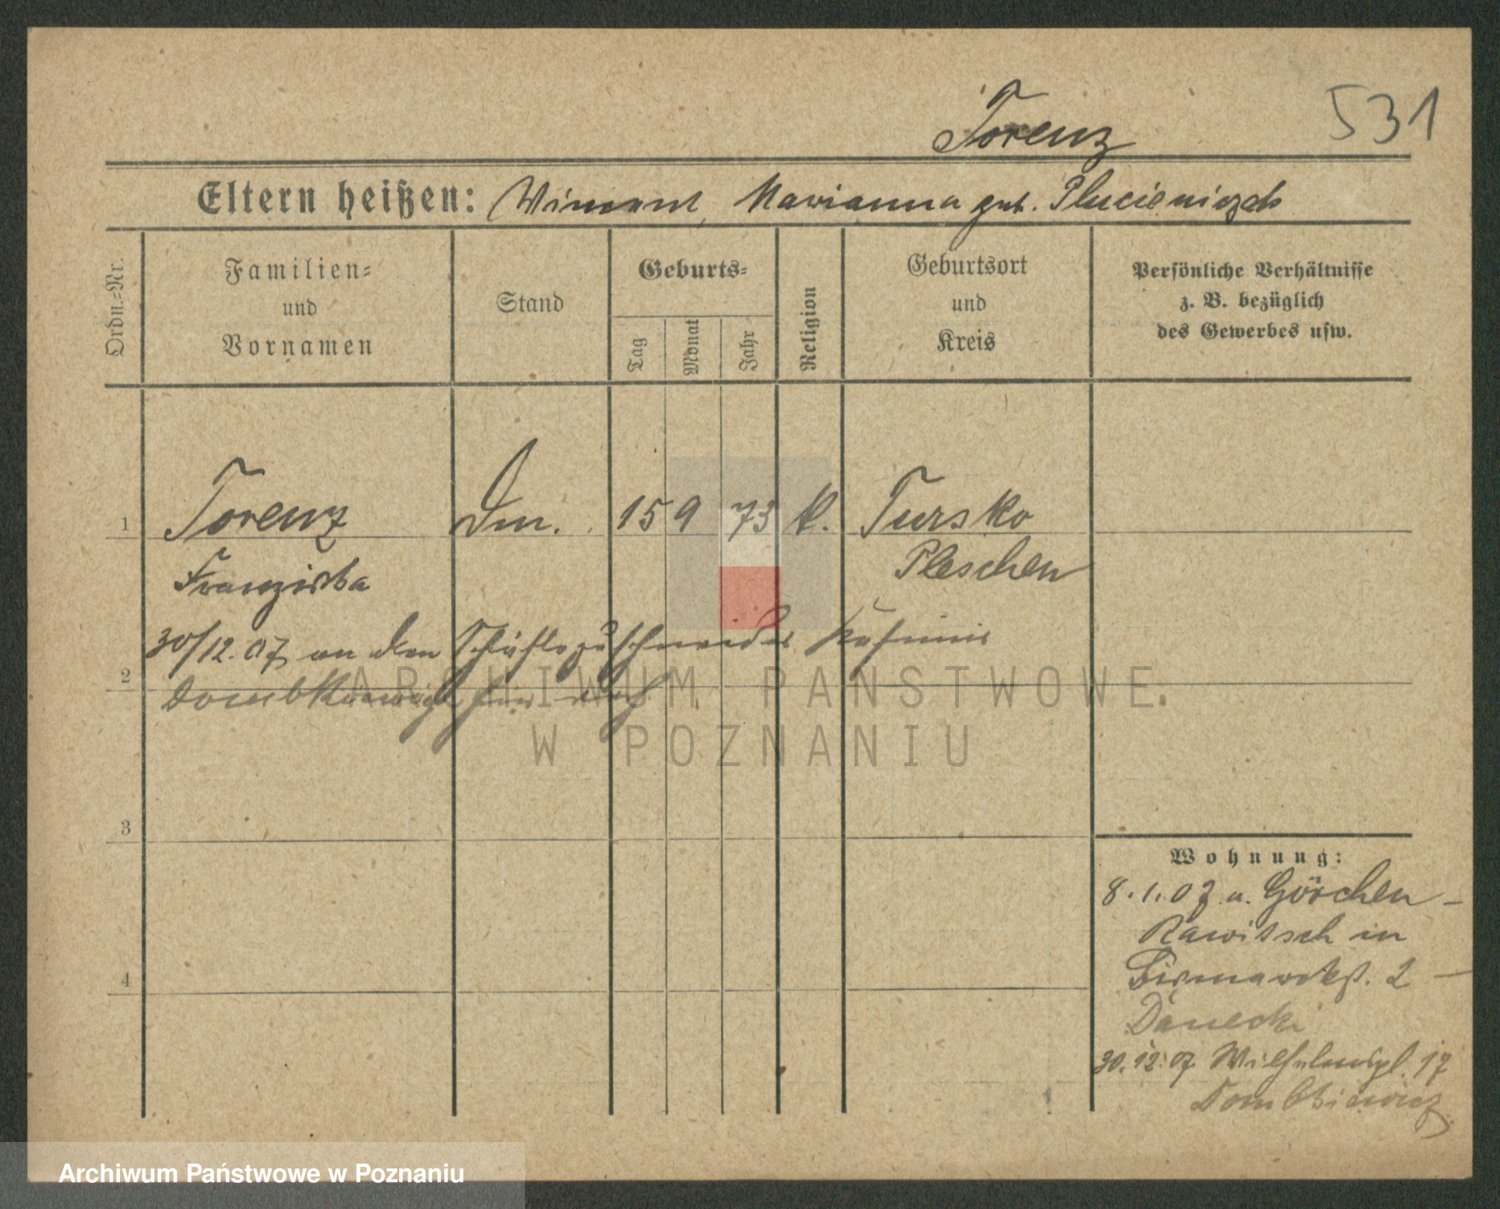 Torenz
531
Eltern heißen: Vincent, Marianna geb. Plucieniczak
Ordn.=Nr.
Familien=
und
Vornamen
Stand
Geburts=
Tag
Monat
Jahr
Religion
Geburtsort
und
Kreis
Persönliche Verhältnisse
z. B. bezüglich
des Gewerbes usw.
1 Torenz Dm. 15 9 73 k. Tursko
Franziska Pleschen
30/12. 07 an den Schäftezuschneider Kasimir
2
3
4
Wohnung:
8. 1. 07 v. Görchen-
Rawitsch in
Bismarckst. 2 -
Danecki
30. 12. 07 Wilhelmspl. 17
ARCHIWUM PAŃSTWOWE
W POZNANIU
Archiwum Państwowe w Poznaniu